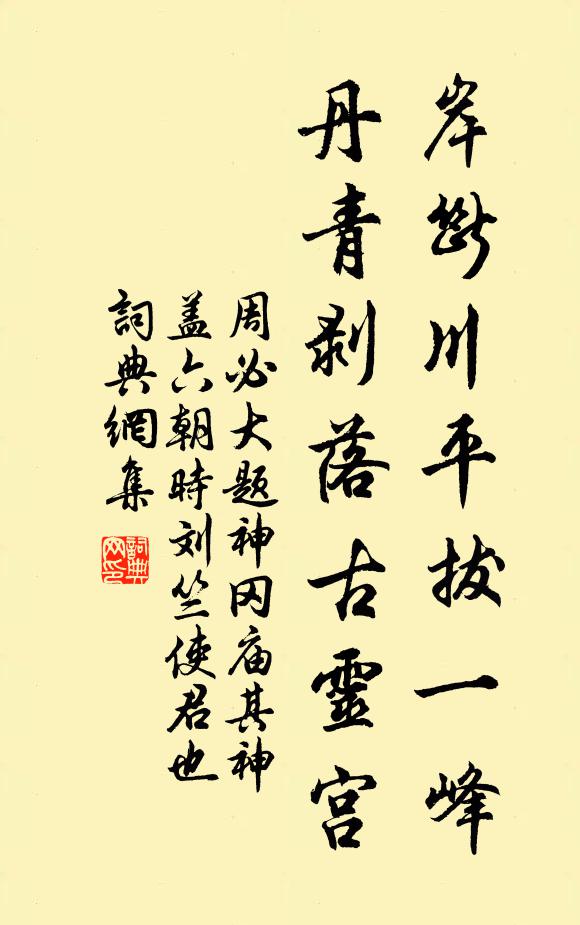 岸斷川平拔一峰
丹青剥落古靈宫
周必大题神冈庙其神
盖六朝時刘竺使君也
詞典網集
詞典网印